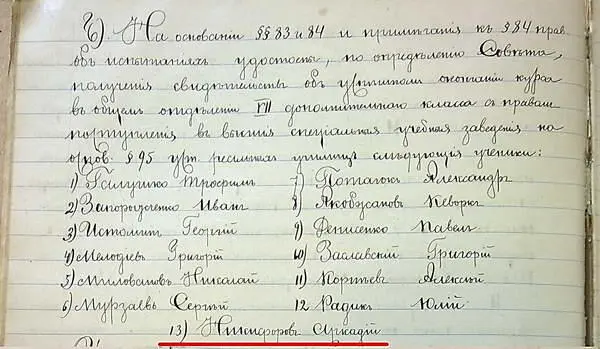 Б). На основаніи §§ 83 и 84 и примѣчанія къ § 84 прав.
объ испытаніяхъ удостоены, по опредѣленію Совѣта,
полученія свидѣтельствъ объ успѣшномъ окончаніи курса
въ общемъ отдѣленіи VII дополнительнаго класса съ правомъ
поступленія въ высшія спеціальныя учебныя заведенія на
основ. § 95 уст. реальныхъ училищъ слѣдующіе ученики:
1) Галушко Трофимъ 7) Потаповъ Александръ
2) Загородненко Иванъ 8) Якобусановъ Кеворкъ
3) Истоминъ Георгій 9) Денисенко Павелъ
4) Мелодіевъ Григорій 10) Заславскій Григорій
5) Миловановъ Николай 11) Корнѣевъ Алексѣй
6) Мурзаевъ Сергѣй 12 Радикъ Юлій
13) Никифоровъ Аркадій